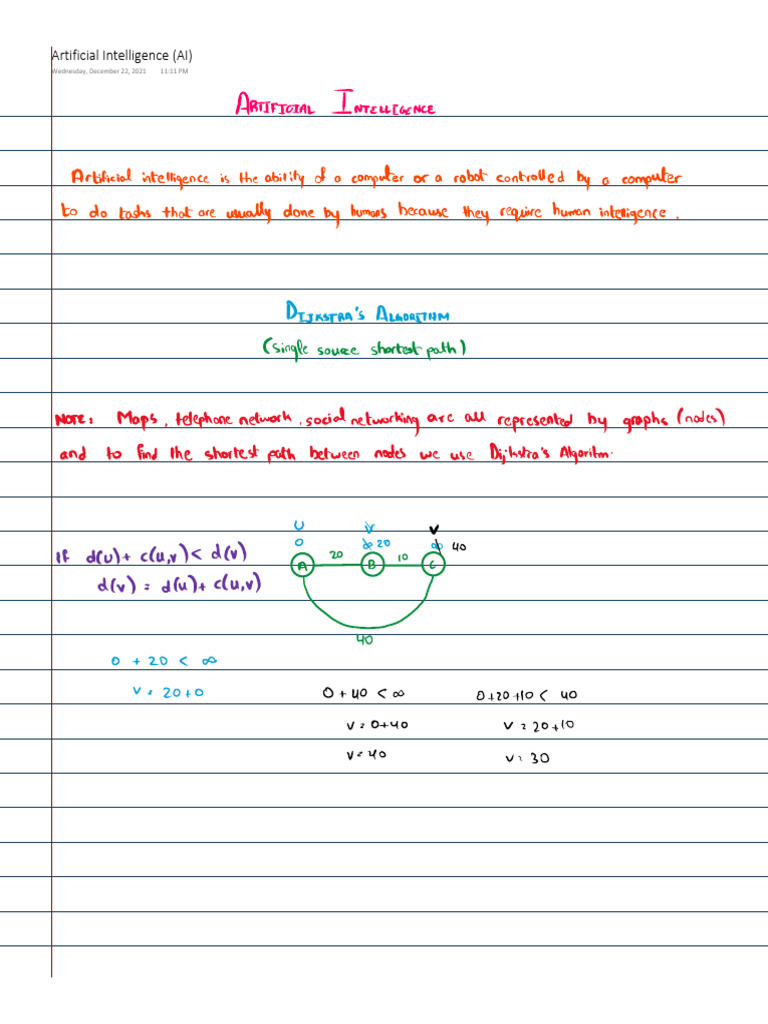 Artificial Intelligence (AI)
Wednesday, December 22, 2021 11:11 PM
ARTIFICIAL INTELLIGENCE
Artificial intelligence is the ability of a computer or a robot controlled by a computer
to do tasks that are usually done by humans because they require human intelligence.
DIJKSTRA'S ALGORITHM
(single source shortest path)
NOTE: Maps, telephone network, social networking are all represented by graphs (nodes)
and to find the shortest path between nodes we use Dijkstra's Algoritm.
U v V
0 ∞ 20 ∞ 40
If d(u) + c(u,v) < d(v)
A 20 B 10 C
d(v) = d(u) + c(u,v)
40
0 + 20 < ∞
v = 20 + 0
0 + 40 < ∞ 0+20+10 < 40
v = 0+40 v = 20+10
v = 40 v = 30